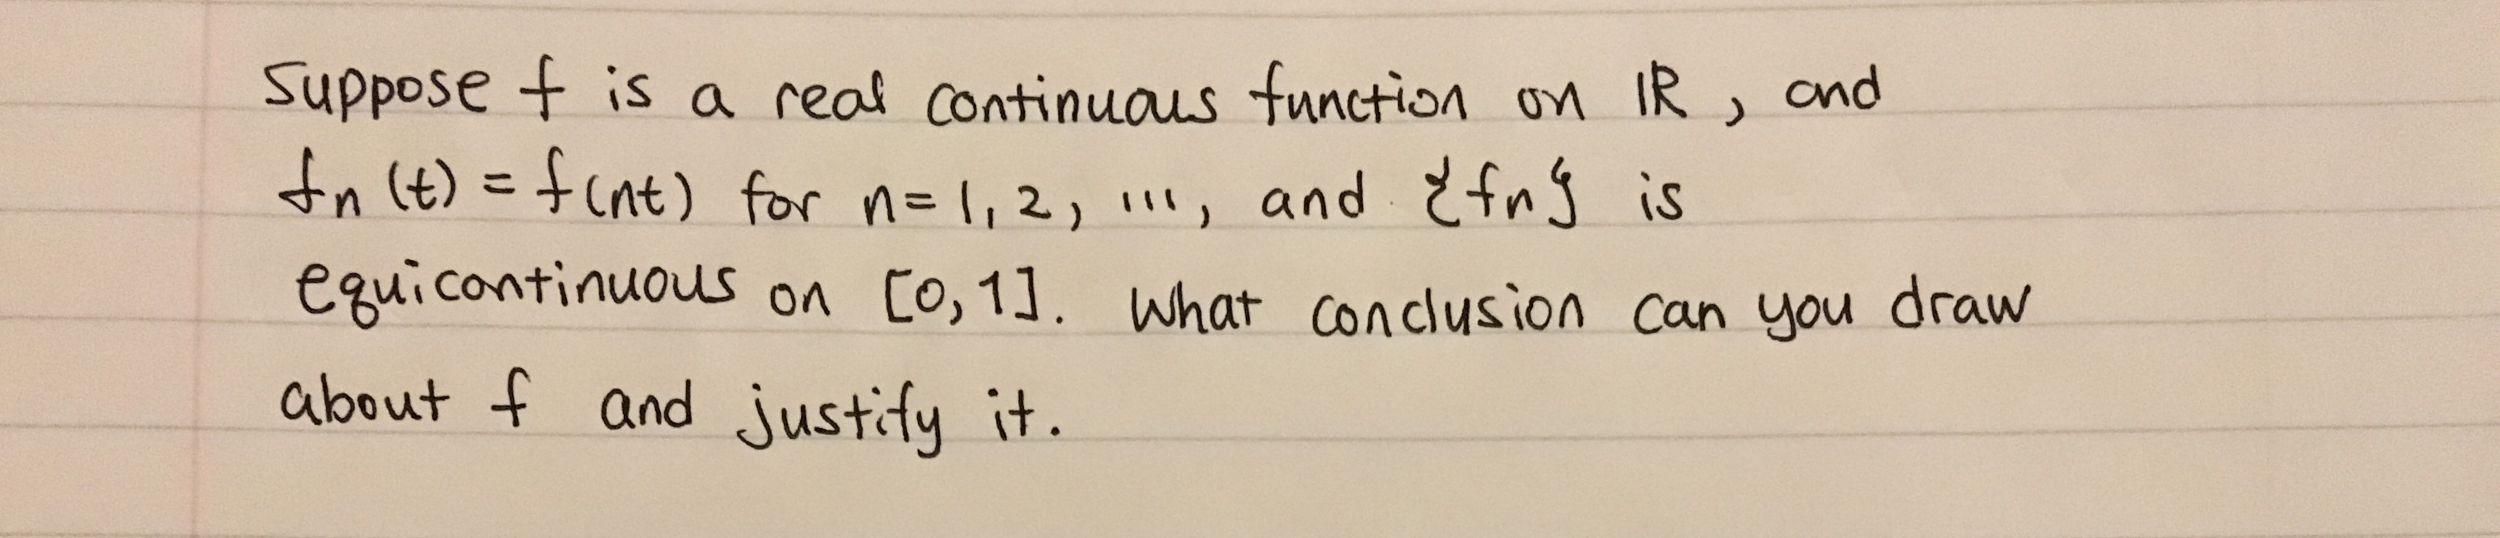 Suppose f is a real continuous function on ℝ, and
fn (t) = f(nt) for n = 1, 2, ..., and {fn} is
equicontinuous on [0, 1]. What conclusion can you draw
about f and justify it.